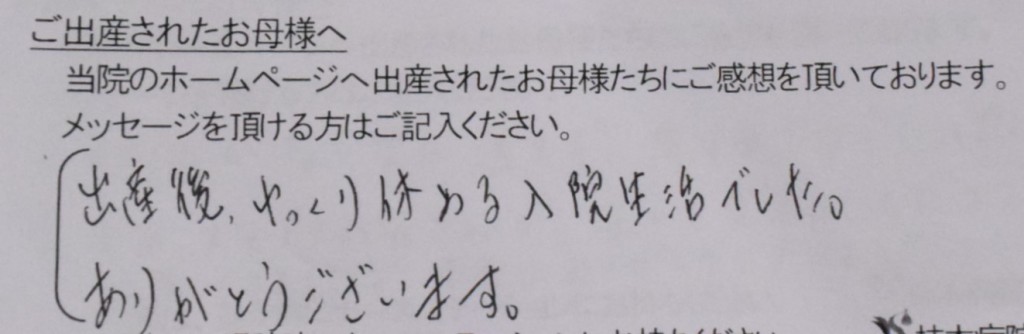 ご出産されたお母様へ
当院のホームページへ出産されたお母様たちにご感想を頂いております。
メッセージを頂ける方はご記入ください。
出産後、ゆっくり休める入院生活でした。
ありがとうございます。